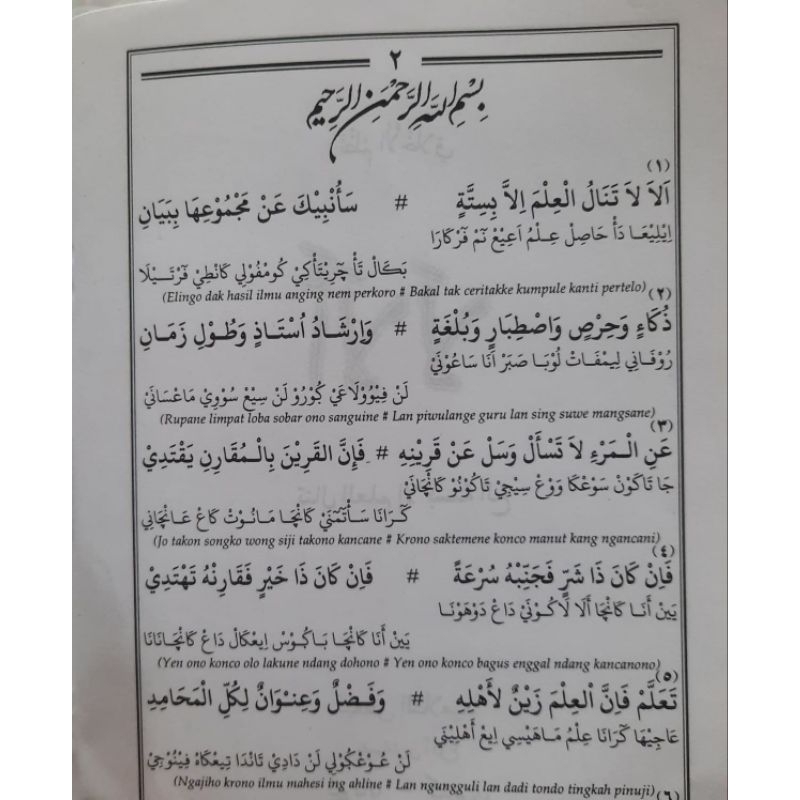 ٢
بِسْمِ اللهِ الرَّحْمٰنِ الرَّحِيْمِ
(١)
اَلاَ لاَ تَنَالُ الْعِلْمَ اِلاَّ بِسِتَّةٍ # سَأُنْبِيْكَ عَنْ مَجْمُوْعِهَا بِبَيَانِ
اِيْلِيْڠَا دَأْ حَاصِلْ عِلْمُ اَڠِيْڠْ نَمْ فَرْكَارَا
بَكَالْ تَأْ چَرِيْتَأْكَيْ كُوْمْفُوْلَيْ كَانْطِيْ فَرْتَيْلَا
(Elingo dak hasil ilmu anging nem perkoro # Bakal tak ceritakke kumpule kanti pertelo)
(٢)
ذُكَاءٍ وَحِرْصٍ وَاصْطِبَارٍ وَبُلْغَةٍ # وَاِرْشَادُ اُسْتَاذٍ وَطُوْلِ زَمَانِ
رُوْفَانَيْ لِيْمْفَاتْ لَوْبَا صَبَرْ اَنَا سَاڠُوْنَيْ
لَنْ فِيْوُوْلَاڠَيْ كُوْرُوْ لَنْ سِيْڠْ سُوْوَيْ مَاڠْسَانَيْ
(Rupane limpat loba sobar ono sanguine # Lan piwulange guru lan sing suwe mangsane)
(٣)
عَنِ الْمَرْءِ لاَ تَسْأَلْ وَسَلْ عَنْ قَرِيْنِهِ # فَإِنَّ الْقَرِيْنَ بِالْمُقَارِنِ يَقْتَدِيْ
جَا تَاكَوْنْ سَوْڠْكَا وَوْڠْ سِيْجِيْ تَاكَوْنَوْ كَانْچَانَيْ
كَرَانَا سَأْتَمَنَيْ كَانْچَا مَانُوْتْ كَاڠْ ڠَانْچَانِيْ
(Jo takon songko wong siji takono kancane # Krono saktemene konco manut kang ngancani)
(٤)
فَاِنْ كَانَ ذَا شَرٍّ فَجَنِّبْهُ سُرْعَةً # فَاِنْ كَانَ ذَا خَيْرٍ فَقَارِنْهُ تَهْتَدِيْ
يَيْنْ اَنَا كَانْچَا اَلَا لَاكُوْنَيْ دَاڠْ دَوْهَوْنَا
يَيْنْ اَنَا كَانْچَا بَاكُوْسْ اِيْڠْكَالْ دَاڠْ كَانْچَانَانَا
(Yen ono konco olo lakune ndang dohono # Yen ono konco bagus enggal ndang kancanono)
(٥)
تَعَلَّمْ فَاِنَّ الْعِلْمَ زَيْنٌ لأَهْلِهِ # وَفَضْلٌ وَعِنْوَانٌ لِكُلِّ الْمَحَامِدِ
ڠَاجِيْهَا كَرَانَا عِلْمُ مَاهَيْسِيْ اِيْڠْ أَهْلِيْنَيْ
لَنْ ڠُوْڠْكُوْلِيْ لَنْ دَادِيْ تَانْدَا تِيْڠْكَاهْ فِيْنُوْجِيْ
(Ngajiho krono ilmu mahesi ing ahline # Lan ngungguli lan dadi tondo tingkah pinuji)
(٦)